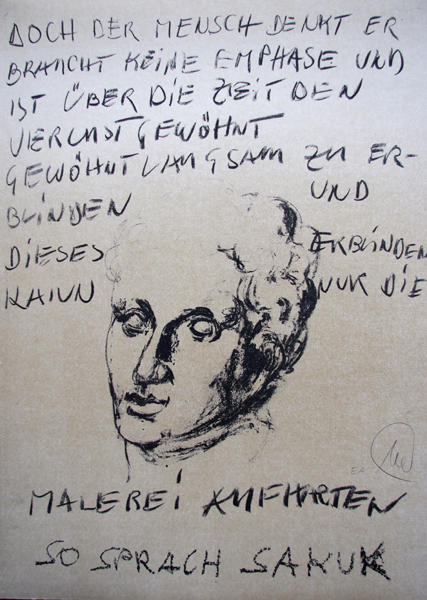 DOCH DER MENSCH DENKT ER
BRAUCHT KEINE EMPHASE UND
IST ÜBER DIE ZEIT DEN
VERLUST GEWÖHNT
GEWÖHNT LANGSAM ZU ER-
BLINDEN UND
DIESES ERBLINDEN
KANN NUR DIE
EA
MALEREI AUFHALTEN
SO SPRACH SAKUK